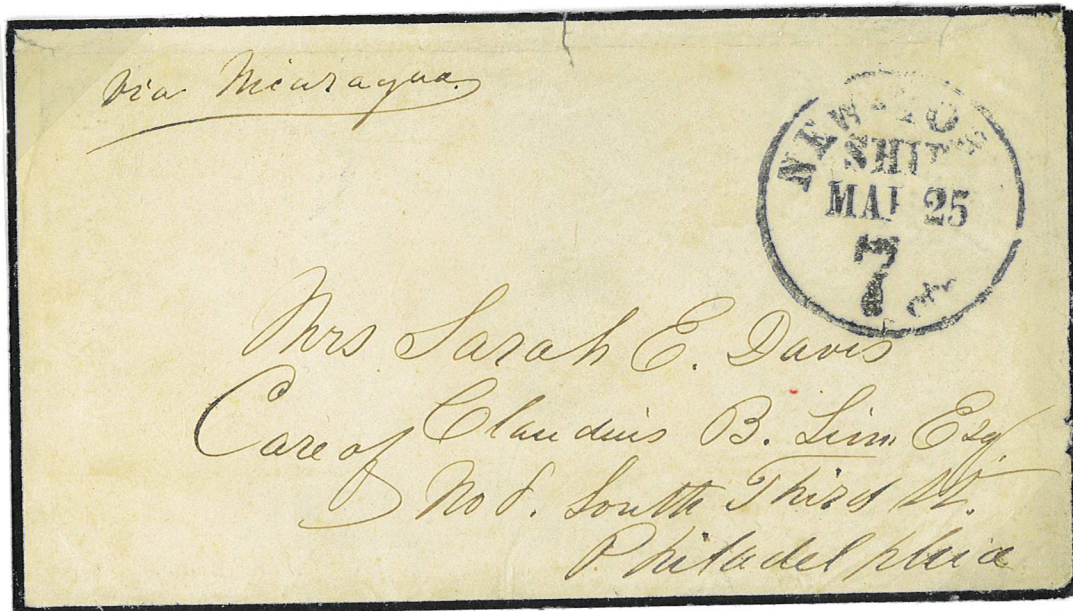 via Nicaragua.
NEW-YOR
SHIP
MAR 25
7 cts
Mrs Sarah E. Davis
Care of Claudius B. Linn Esq.
No 8. South Third St.
Philadelphia